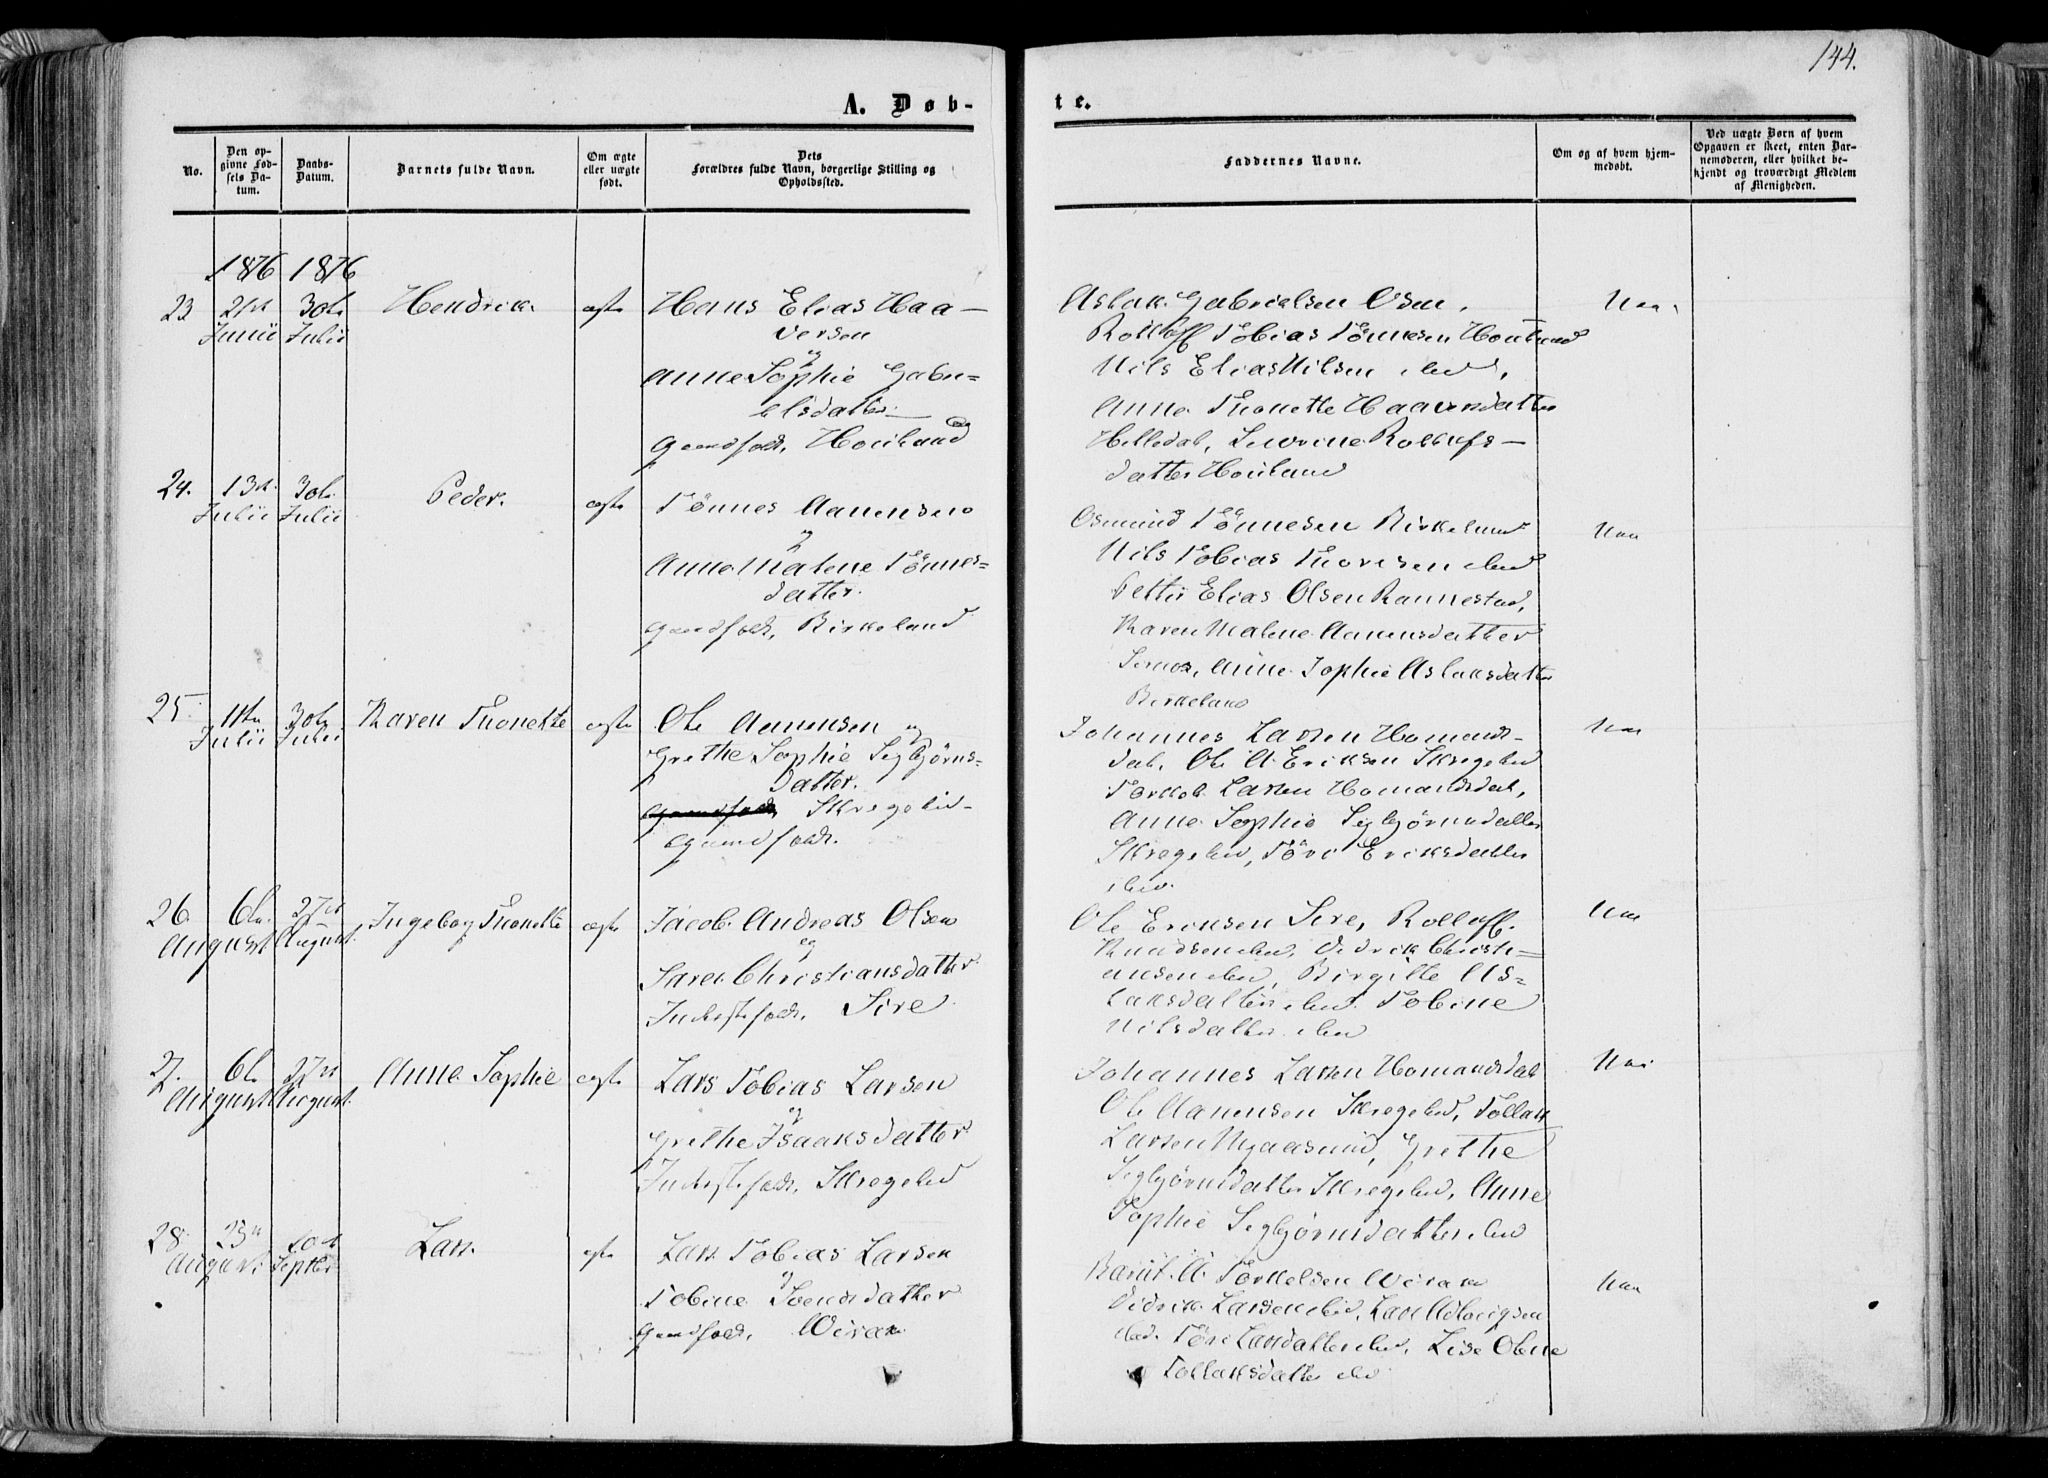 144.
A. Døb-
te.
No.
Den op-
givne Fød-
sels Da-
tum.
Daabs-
Datum.
Barnets fulde Navn.
Om ægte
eller uægte
født.
Dets
Forældres fulde Navn, borgerlige Stilling og
Opholdssted.
Faddernes Navne.
Om og af hvem hjem-
medøbt.
Ved uægte Børn af hvem
Opgaven er skeet, enten Bar-
nemoderen, eller hvilket be-
kjendt og troværdigt Medlem
af Menigheden.
1876 1876
23
Junii
30te
Julii
Hendrik
ægte
Hans Elias Haa-
versen
og
Anne Sophie Gabri-
elsdatter
Gaardfolk, Houland
Aslak Gabrielsen Osen,
Rolluff Tobias Tönnesen Houland
Nils Elias Nilsen ibid,
Anne Thonette Haaversdatter
Helledal, Severine Rollufs-
datter Houland
24.
13de
Julii
30te
Julii
Peder.
ægte
Tönnes Aanensen
og
Anne Malene Tönnes-
datter.
Gaardfolk, Birkeland
Osmund Tönnesen Birkeland
Nils Tobias Thorsen ibid
Petter Elias Olsen Rannestad,
Karen Malene Aanensdatter
Anne Sophie Aslaksdatter
Birkeland
25
11te
Julii
30te
Julii
Karen Thonette
ægte
Ole Aanensen og
Grethe Sophie Segbjörns-
datter.
Skregelid
Gaardfolk.
Johannes Larsen Homands-
dal, Ole A. Eriksen Skregelid
Torkel Larsen Homandsdal,
Anne Sophie Segbjörnsdatter
Skregelid, Töre Eriksdatter
ibid.
26
6te
August
27de
August.
Ingeborg Thonette
ægte
Jacob Andreas Olsen
og
Saren Christiansdatter
Inderstfolk, Sire
Ole Eriksen Sire, Rolluff
Knudsen ibid, Didrik Christi-
ansen ibid, Birgitte As-
laksdatter ibid. Tobine
Nilsdatter ibid
27.
6te
August
27de
August.
Anne Sophie
ægte
Lars Tobias Larsen
og
Grethe Isaaksdatter
Inderstfolk, Skregelid
Johannes Larsen Homandsdal
Ole Aanensen Skregelid, Tollak
Larsen Mygaasund, Grethe
Segbjörnsdatter Skregelid, Anne
Sophie Segbjörnsdatter ibid
28
23de
August
10de
Septbr
Lars
ægte
Lars Tobias Larsen
og
Tobine Svendsdatter
Gaardfolk, Virak
Torkelsen Virak
Didrik Larsen ibid,
ibid. Töre Larsdatter ibid, Lise Oline
Tollaksdatter ibid